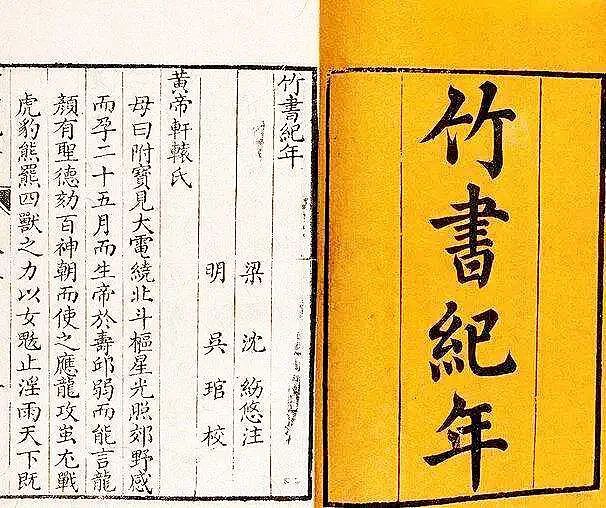 竹書紀年
竹書紀年
梁 沈 約 悠注
明 吳 琯 校
黃帝軒轅氏
母曰附寶見大電繞北斗樞星光照郊野感
而孕二十五月而生帝於壽邱弱而能言龍
顏有聖德劾百神朝而使之應龍攻蚩尤戰
虎豹熊羆四獸之力以女魃止淫雨天下既